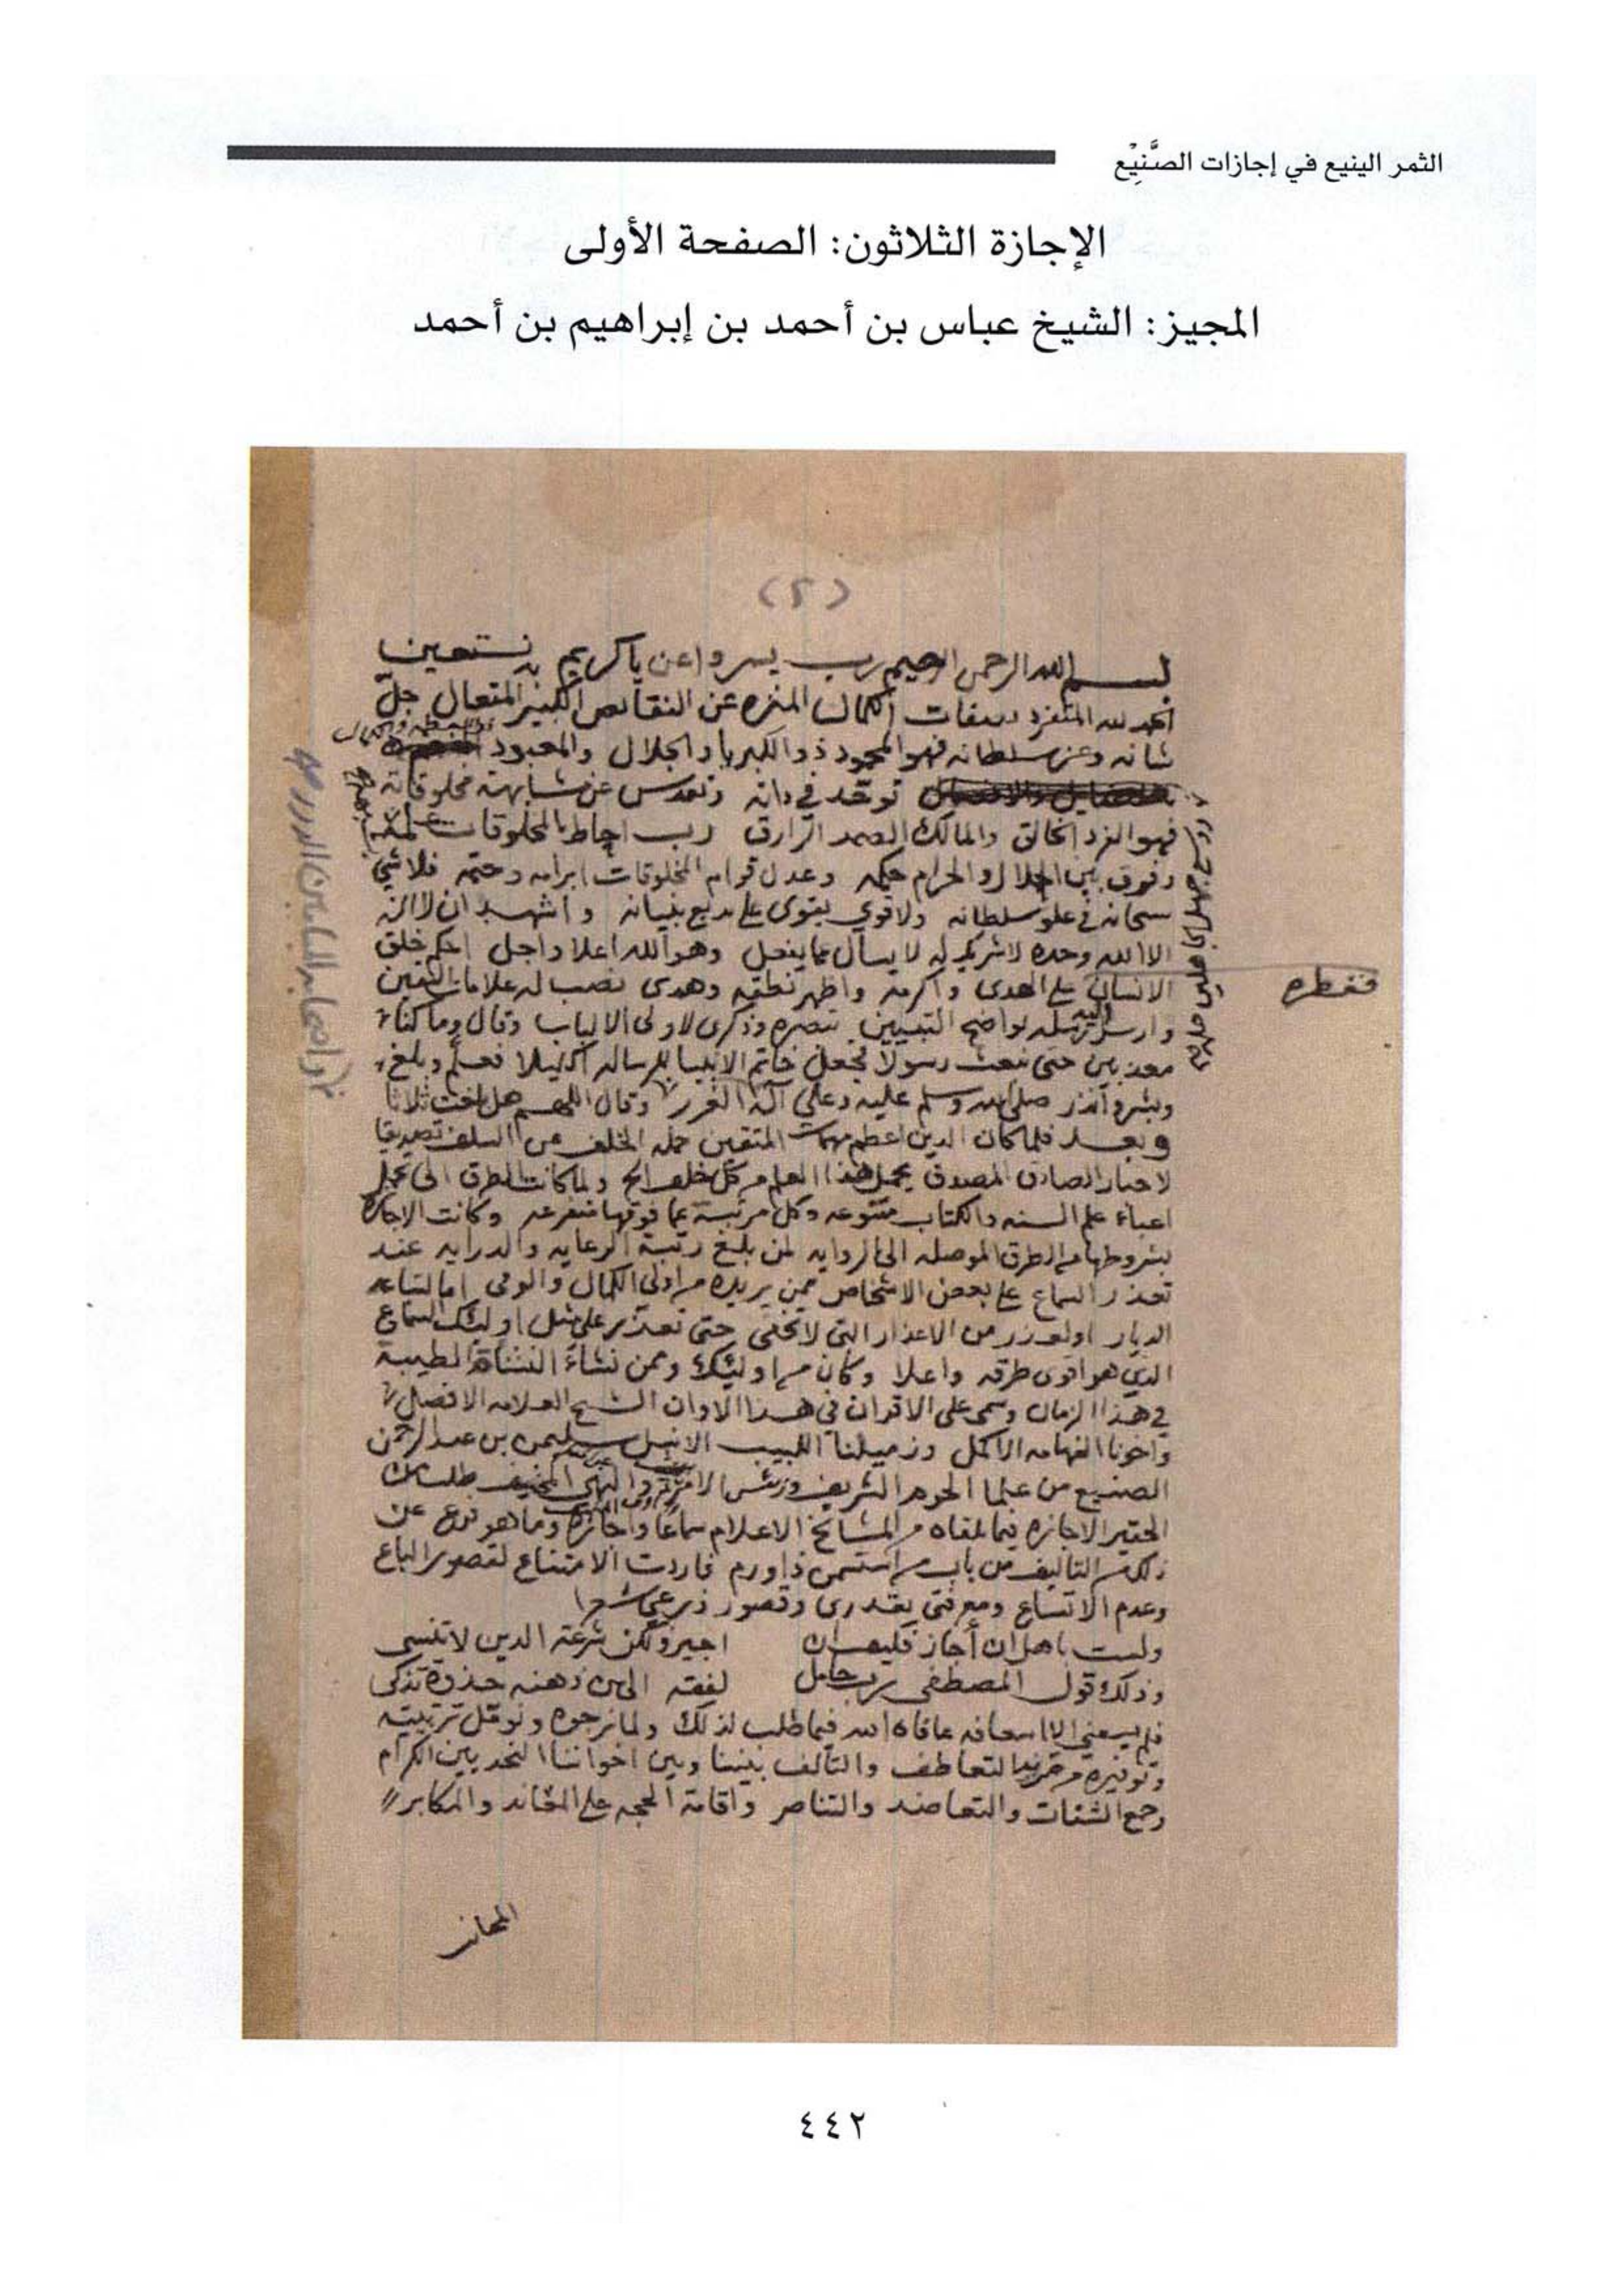 الثمر الينيع في إجازات الصَّنِيْع
الإجازة الثلاثون: الصفحة الأولى
المجيز: الشيخ عباس بن أحمد بن إبراهيم بن أحمد
(٢)
بسم الله الرحمن الرحيم رب يسر واعن يا كريم به نستعين
الحمد لله المتفرد بصفات الكمال المنزه عن النقائص الكبير المتعال جل
شانه وعز سلطانه فهو المحمود ذو الكبرياء والجلال والمعبود
توحد في ذاته وتقدس عن مشابهة مخلوقاته
فهو الفرد الخالق والمالك الصمد الرازق رب احاط بالمخلوقات علمه
وفرق بين الحلال والحرام حكمه وعدل قوام المخلوقات ابرامه وحتمه فلا شي
سبحانه في علو سلطانه ولا قوي يقوى على بديع بنيانه واشهد ان لا اله
الا الله وحده لا شريك له لا يسال عما يفعل وهو الله اعلا واجل احكم خلق
الانسان على الهدى واكرمه واظهر نطقه وهدى نصب له علامات اليقين
ففطره
وارسل اليه رسله بواضح التبيين تبصره وذكرى لاولى الالباب وقال وما كنا
معذبين حتى نبعث رسولا فجعل خاتم الانبيا للرساله اكليلا فعلم وبلغ
وبشر وأنذر صلى الله وسلم عليه وعلى آله الغرر وقال اللهم هل بلغت ثلاثا
وبعد فلما كان الدين اعظم مهمات المتقين حمله الخلف عن السلف تصديقا
لاخبار الصادق المصدوق يحمل هذا العلم من كل خلف الخ ولما كانت الطرق الى تحمل
اعباء علم السنه والكتاب متنوعه وكل مرتبة عما فوقها متفرعه وكانت الاجازة
بشروطها من الطرق الموصله الى الروايه لمن بلغ رتبة الرعايه والدرايه عند
تعذر السماع على بعض الاشخاص ممن يريده من اولى الكمال والوفى اما لتباعد
الديار او لعذر من الاعذار التي لا تخفى حتى تعذر على مثل اوليك السماع
الذي هو اقوى طرقه واعلا وكان من اوليئك وممن نشاء النشأة الطيبة
في هذا الزمان وسمى على الاقران في هذا الاوان الشيخ العلامه الافضل
واخونا الفهامه الاكمل وزميلنا اللبيب الانبل سليمن بن عبد الرحمن
الصنيع من علما الحرم الشريف ورئيس الامر بالمعروف والنهي طلب من
الحقير الاجازه فيما تلقاه من المشائخ الاعلام سماعا واجازة وما هو فرع عن
ذلك من التاليف من باب من استسمن ذا ورم فاردت الامتناع لقصور الباع
وعدم الاتساع ومعرفتي بقدري وقصور ذرعي شعرا
ولست باهل ان أجاز فكيف ان اجيز ولكن شرعة الدين لا تنسى
وذلك قول المصطفى رب حامل لفقه الى من ذهنه جذوة تذكى
فلم يسعني الا اسعافه عافاه الله فيما طلب لذلك ولما نرجوه ونؤمل تربيته
وتوفيره من مزيد التعاطف والتآلف بيننا وبين اخواننا النجديين الكرام
وجمع الشتات والتعاضد والتناصر واقامة الحجه على المعاند والمكابر
٤٤٢